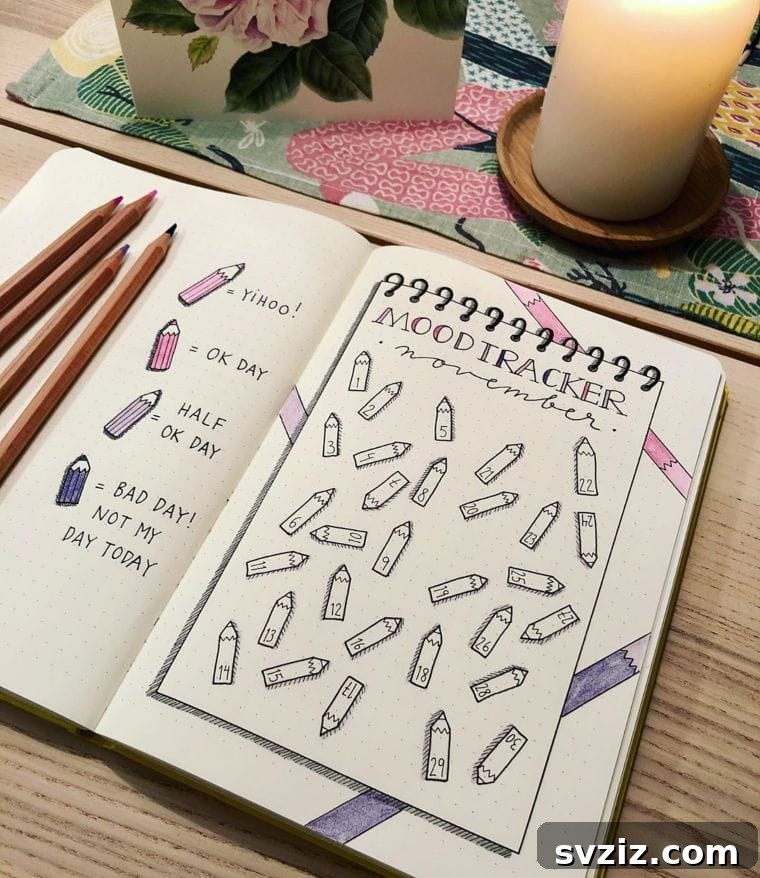 = YiHOO!
= OK DAY
= HALF
OK DAY
= BAD DAY!
NOT MY
DAY TODAY
MOODTRACKER
. november .
1
2
3
4
5
6
7
8
9
10
11
12
13
14
15
16
17
18
19
20
21
22
23
24
25
26
27
28
29
30
svziz.com